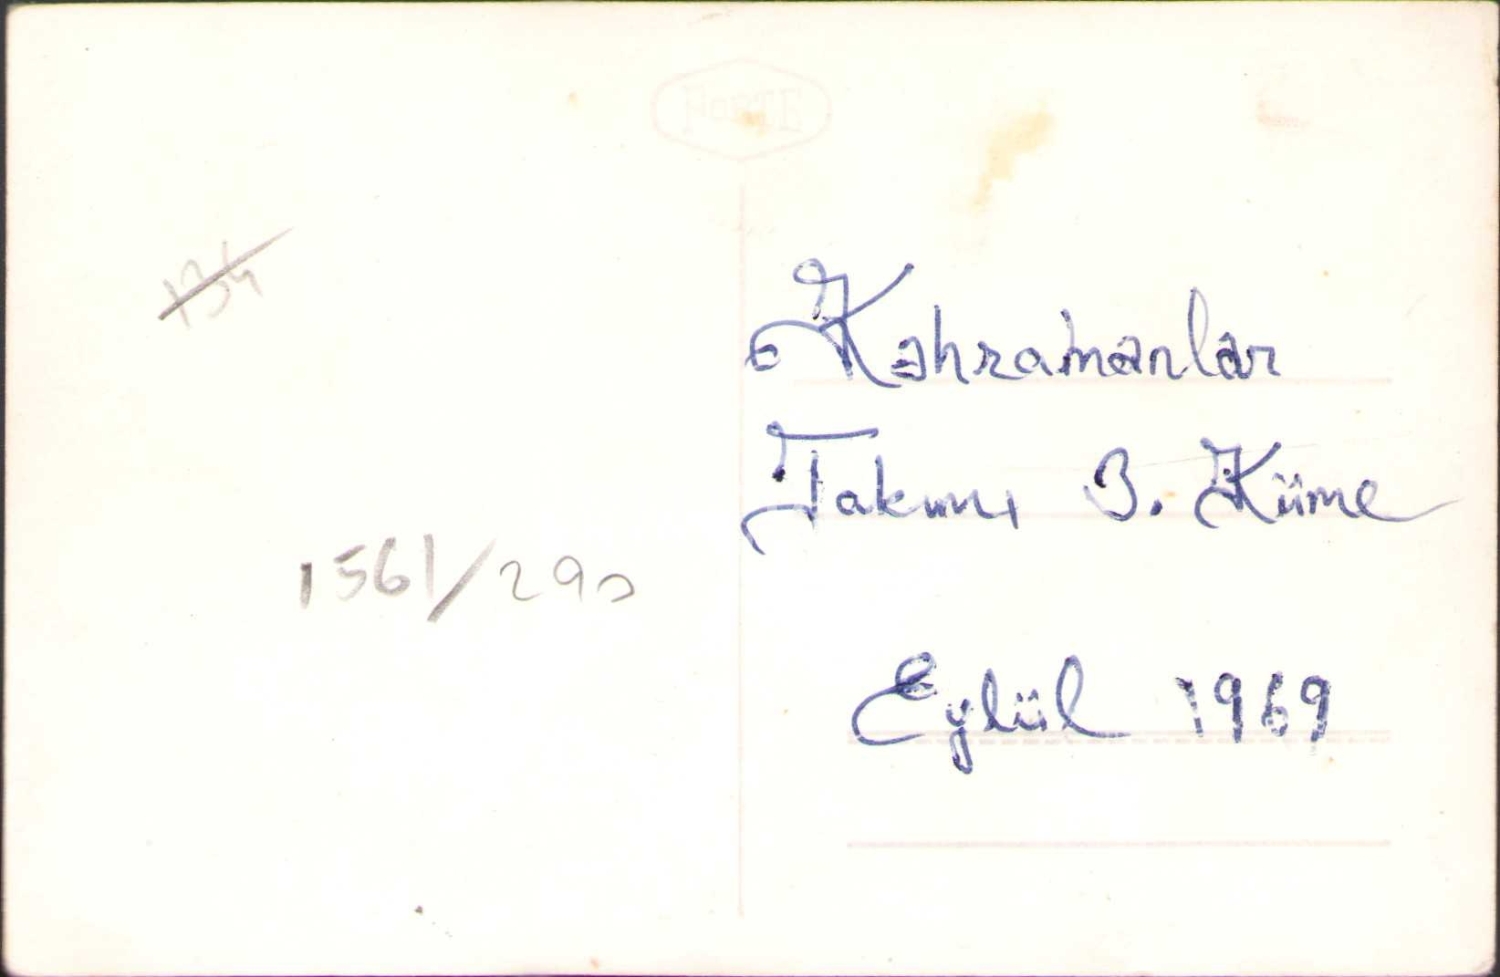 PORTE
134
1561/290
Kahramanlar
Takımı 3. Küme
Eylül 1969